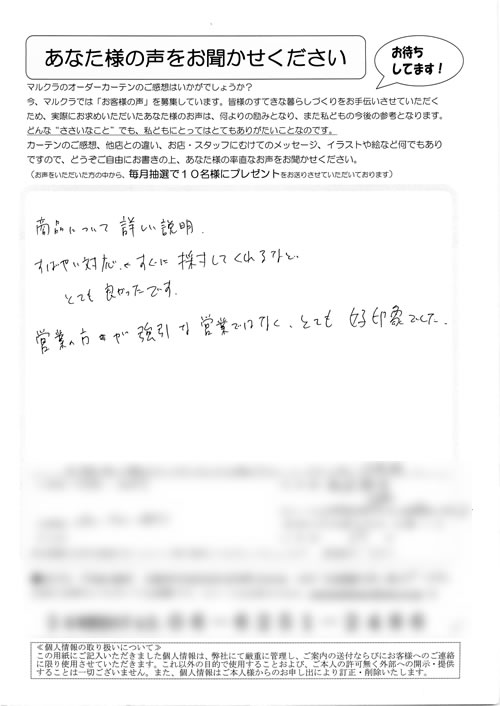 あなた様の声をお聞かせください
お待ち
してます！
マルクラのオーダーカーテンのご感想はいかがでしょうか？
今、マルクラでは「お客様の声」を募集しています。皆様のすてきな暮らしづくりをお手伝いさせていただく
ため、実際にお求めいただいたあなた様のお声は、何よりの励みとなり、また私どもの今後の参考となります。
どんな“ささいなこと”でも、私どもにとってはとてもありがたいことなのです。
カーテンのご感想、他店との違い、お店・スタッフにむけてのメッセージ、イラストや絵など何でもあり
ですので、どうぞご自由にお書きの上、あなた様の率直なお声をお聞かせください。
（お声をいただいた方の中から、毎月抽選で１０名様にプレゼントをお送りさせていただいております）
商品について 詳しい説明、
すばやい対応、すぐに 採寸してくれるなど、
とても 良かったです。
営業の方が 強引な営業ではなく、とても 好印象でした。
≪個人情報の取り扱いについて≫
この用紙にご記入いただきました個人情報は、弊社にて厳重に管理し、ご案内の送付ならびにお客様へのご連絡
に限り使用させていただきます。これ以外の目的で使用することおよび、ご本人の許可無く外部への開示・提供
することは一切ございません。また、個人情報はご本人様からのお申し出により訂正・削除いたします。